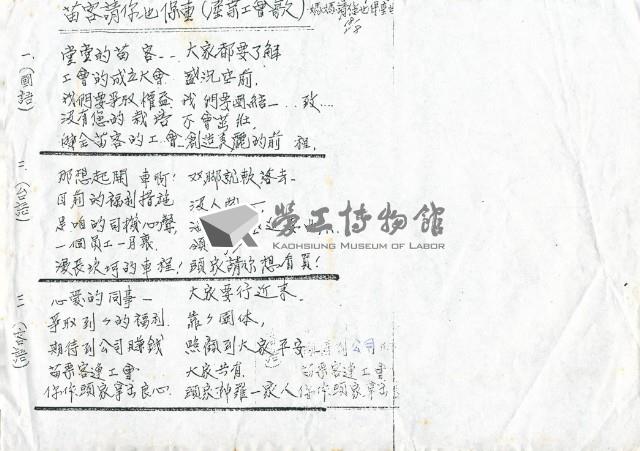 苗客請你也保重(產業工會歌)
媽媽請你也保重
一、(國語)
堂堂的苗客... 大家都要了解
工會的成立大會 盛況空前.
我們要爭取權益 我們要團結一...致...
沒有您的栽培 不會茁壯.
苗客的工會 創造美麗的前程.
二、(台語)
那想起開車啊! 双脚就軟落去-
目前的福利措施 沒人
是咱的司機心聲,
一個員工一身靠
漫長坎坷的車程! 頭家請你想看買!
三、(客語)
心愛的同事一 大家要行近來.
爭取到的福利. 靠團体,
期待到公司賺錢 照顧到大家平安
苗栗客運工會 大家共有
頭家拿出良心. 頭家神雞一家人
公司
苗栗客運工會
頭家拿出
勞工博物館
KAOHSIUNG MUSEUM OF LABOR